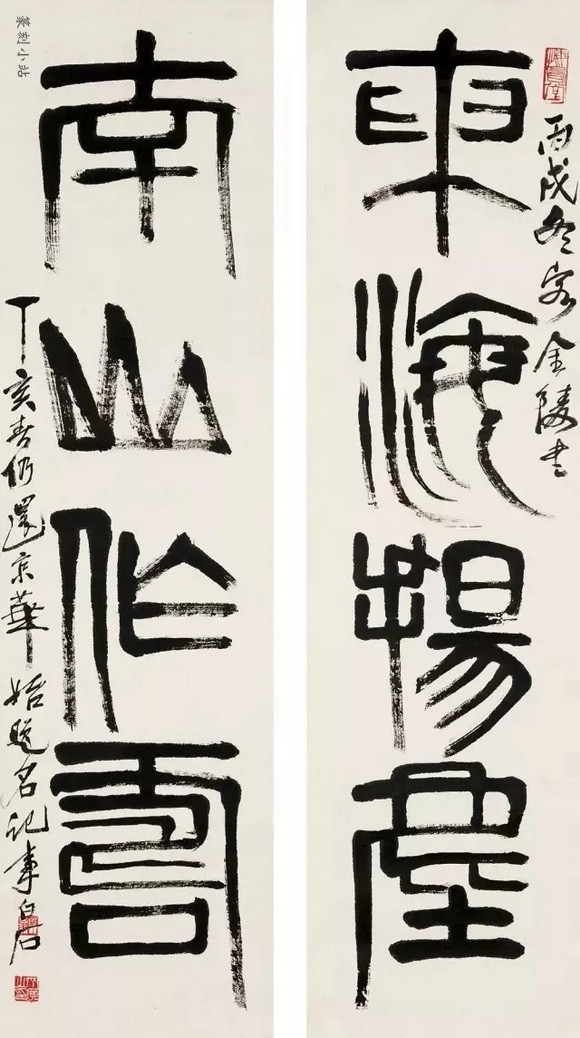 東海揚塵
丙戌冬客金陵書
南山作壽
丁亥春仍還京華始題名記事白石
篆刻小站